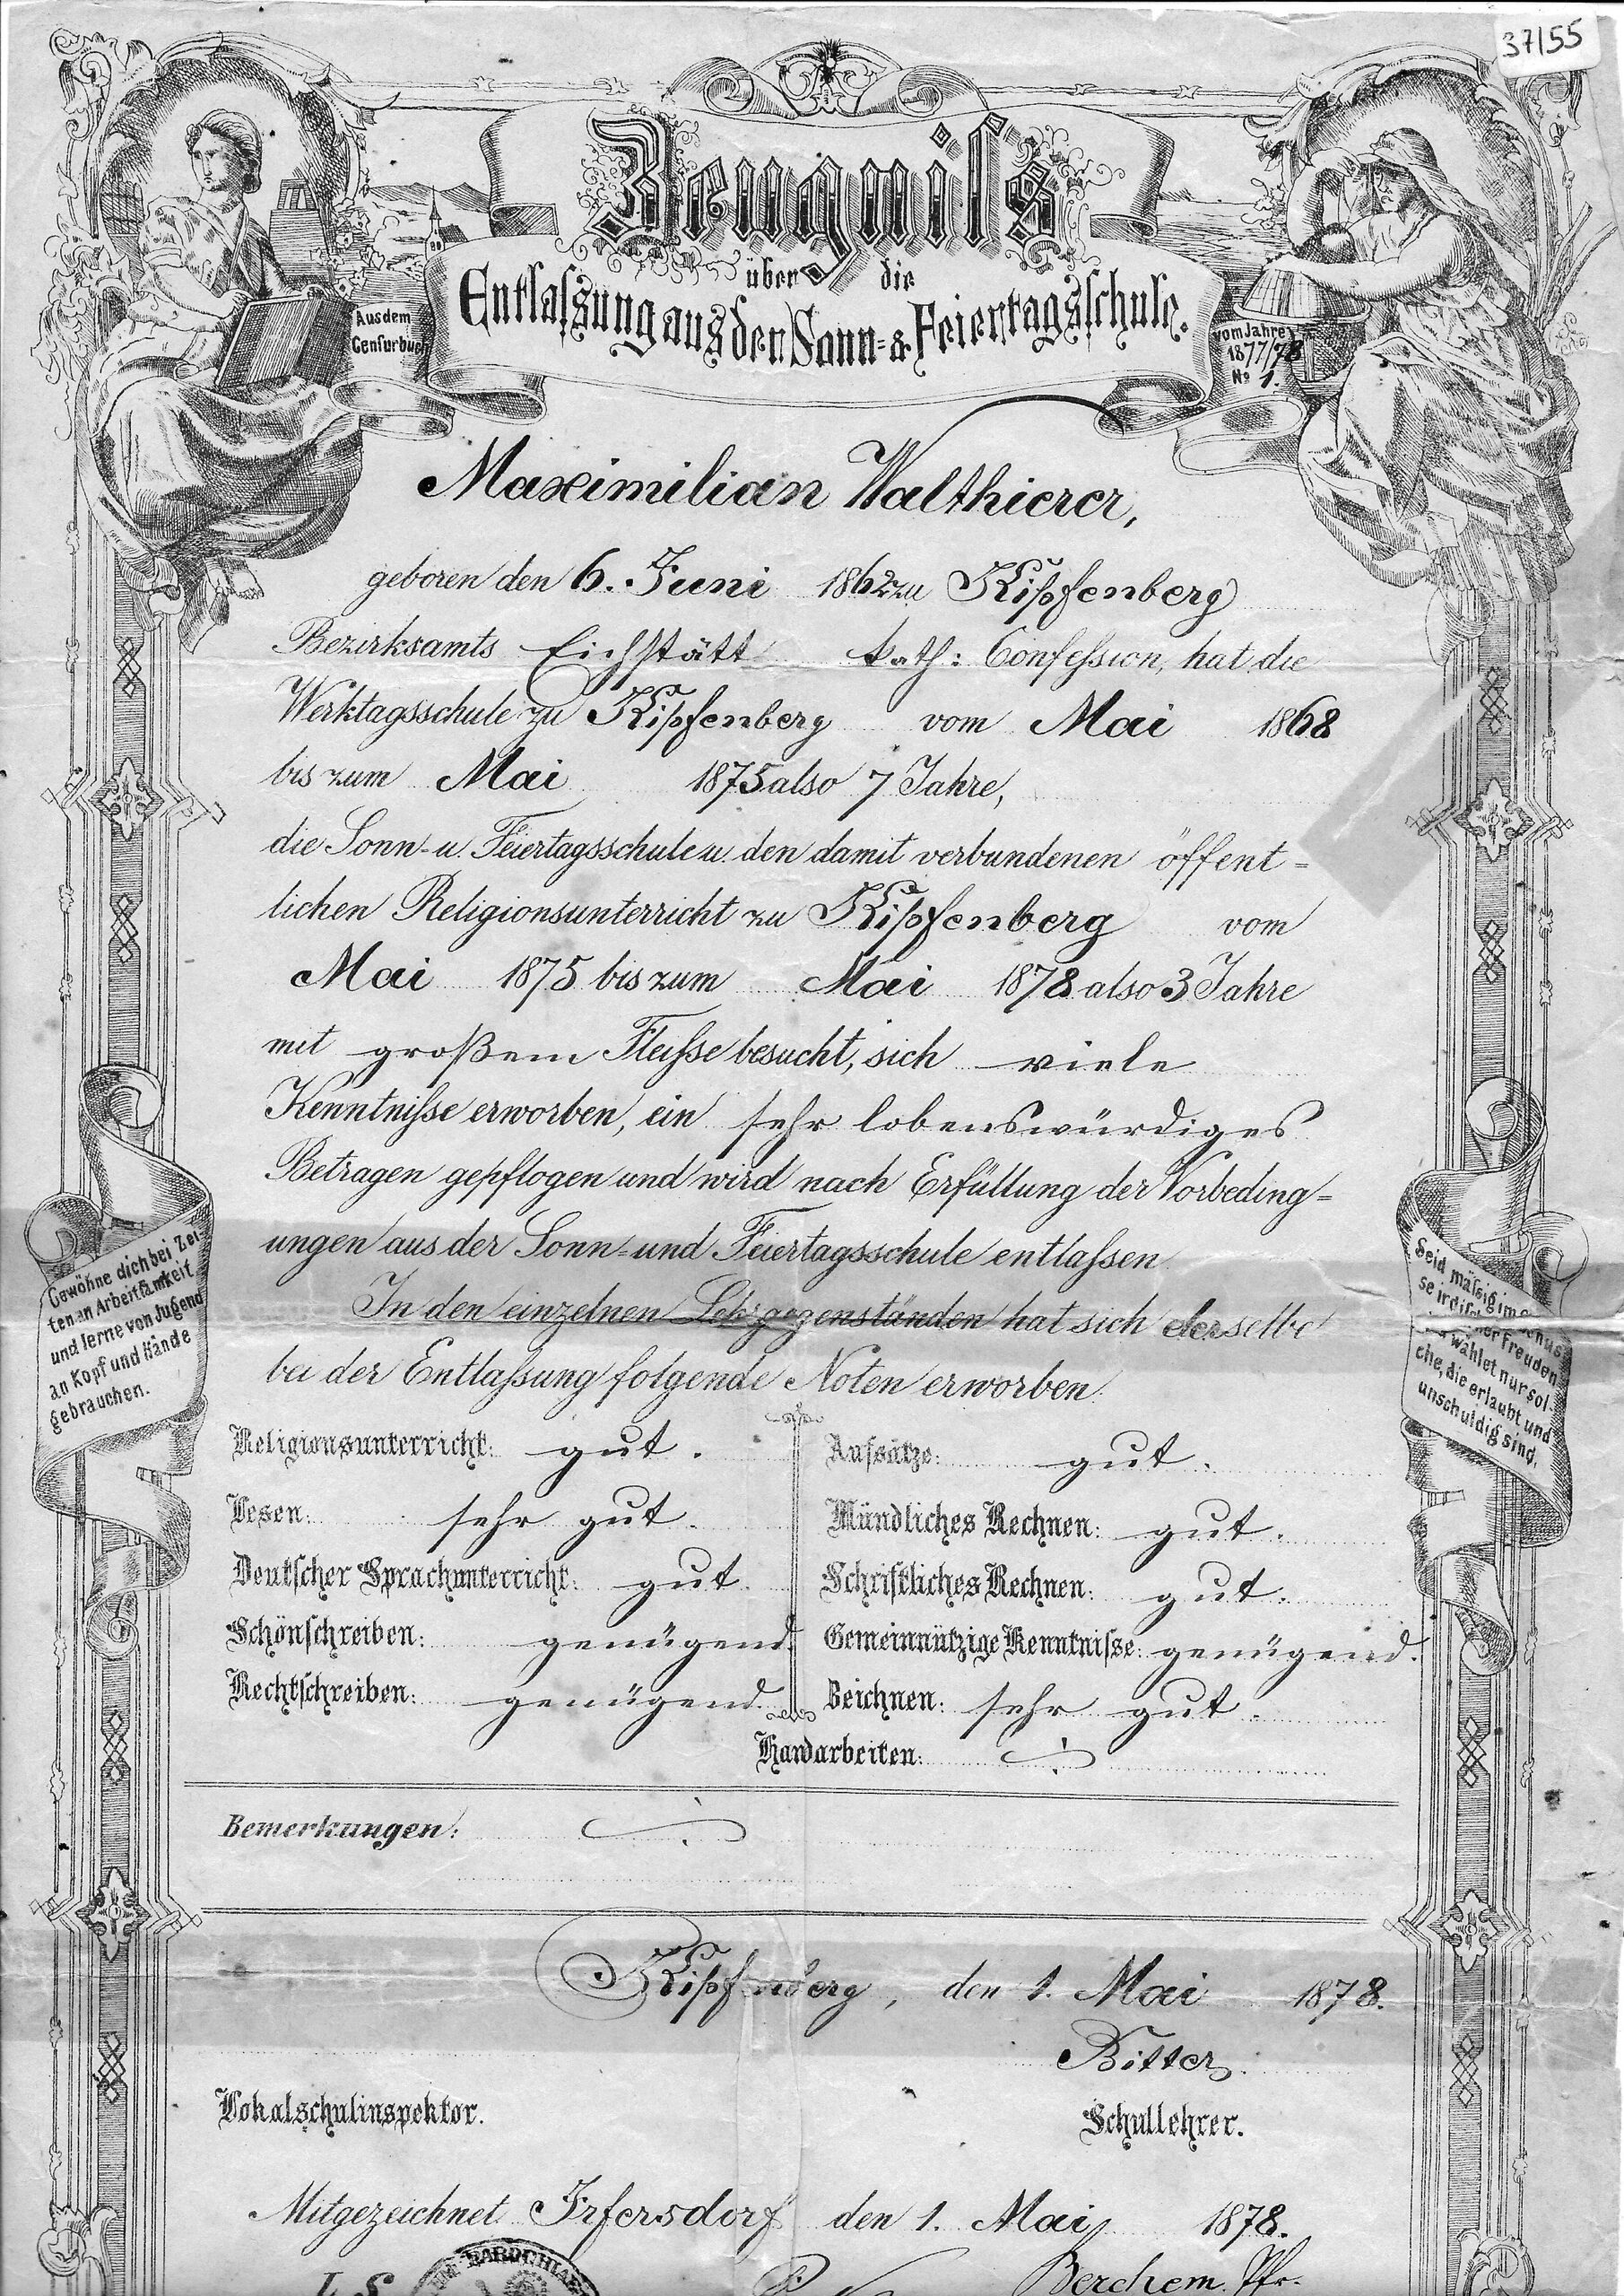 37/55
Zeugniſs
über die
Entlaſsung aus der Sonn- & Feiertagsſchule.
Aus dem
Cenſurbuch
vom Jahre
1877/78
No 1.
Maximilian Walthierer,
geboren den 6. Juni 1862 zu Kipfenberg
Bezirksamts Eichstätt kath: Confeſsion, hat die
Werktagsschule zu Kipfenberg vom Mai 1868
bis zum Mai 1875 also 7 Jahre,
die Sonn- u. Feiertagsschule u. den damit verbundenen öffent-
lichen Religionsunterricht zu Kipfenberg vom
Mai 1875 bis zum Mai 1878 also 3 Jahre
mit großem Fleiſse besucht, sich viele
Kenntniſse erworben, ein sehr lobenswürdiges
Betragen gepflogen und wird nach Erfüllung der Vorbeding-
ungen aus der Sonn- und Feiertagsschule entlaſsen.
In den einzelnen Lehrgegenständen hat sich derselbe
bei der Entlaſsung folgende Noten erworben:
Gewöhne dich bei Zei-
ten an Arbeitſamkeit
und lerne von Jugend
an Kopf und Hände
gebrauchen.
Seid mäſsig im
Freuden
wählet nur sol-
che, die erlaubt und
unschuldig sind.
Religionsunterricht: gut.
Lesen: sehr gut.
Deutſcher Sprachunterricht: gut.
Schönſchreiben: genügend.
Rechtſchreiben: genügend.
Aufsätze: gut.
Mündliches Rechnen: gut.
Schriftliches Rechnen: gut.
Gemeinnützige Kenntniſse: genügend.
Zeichnen: sehr gut.
Handarbeiten:
Bemerkungen:
Kipfenberg, den 1. Mai 1878.
Bitter
Lokalschulinspektor.
Schullehrer.
Mitgezeichnet Irfersdorf den 1. Mai 1878.
L. S.
Berchem. Pfr.